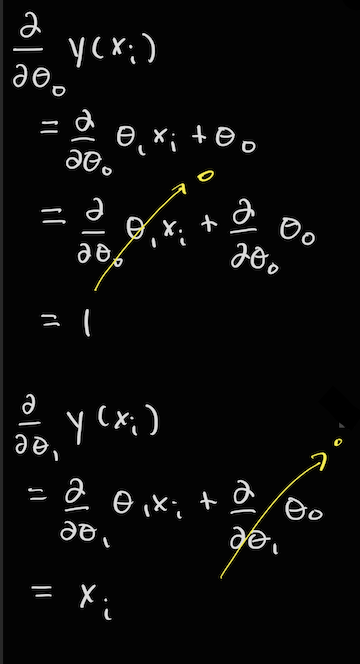 ∂/∂θ₀ y(xᵢ)
= ∂/∂θ₀ θ₁xᵢ + θ₀
= ∂/∂θ₀ θ₁xᵢ + ∂/∂θ₀ θ₀ 0
= 1
∂/∂θ₁ y(xᵢ)
= ∂/∂θ₁ θ₁xᵢ + ∂/∂θ₁ θ₀ 0
= xᵢ